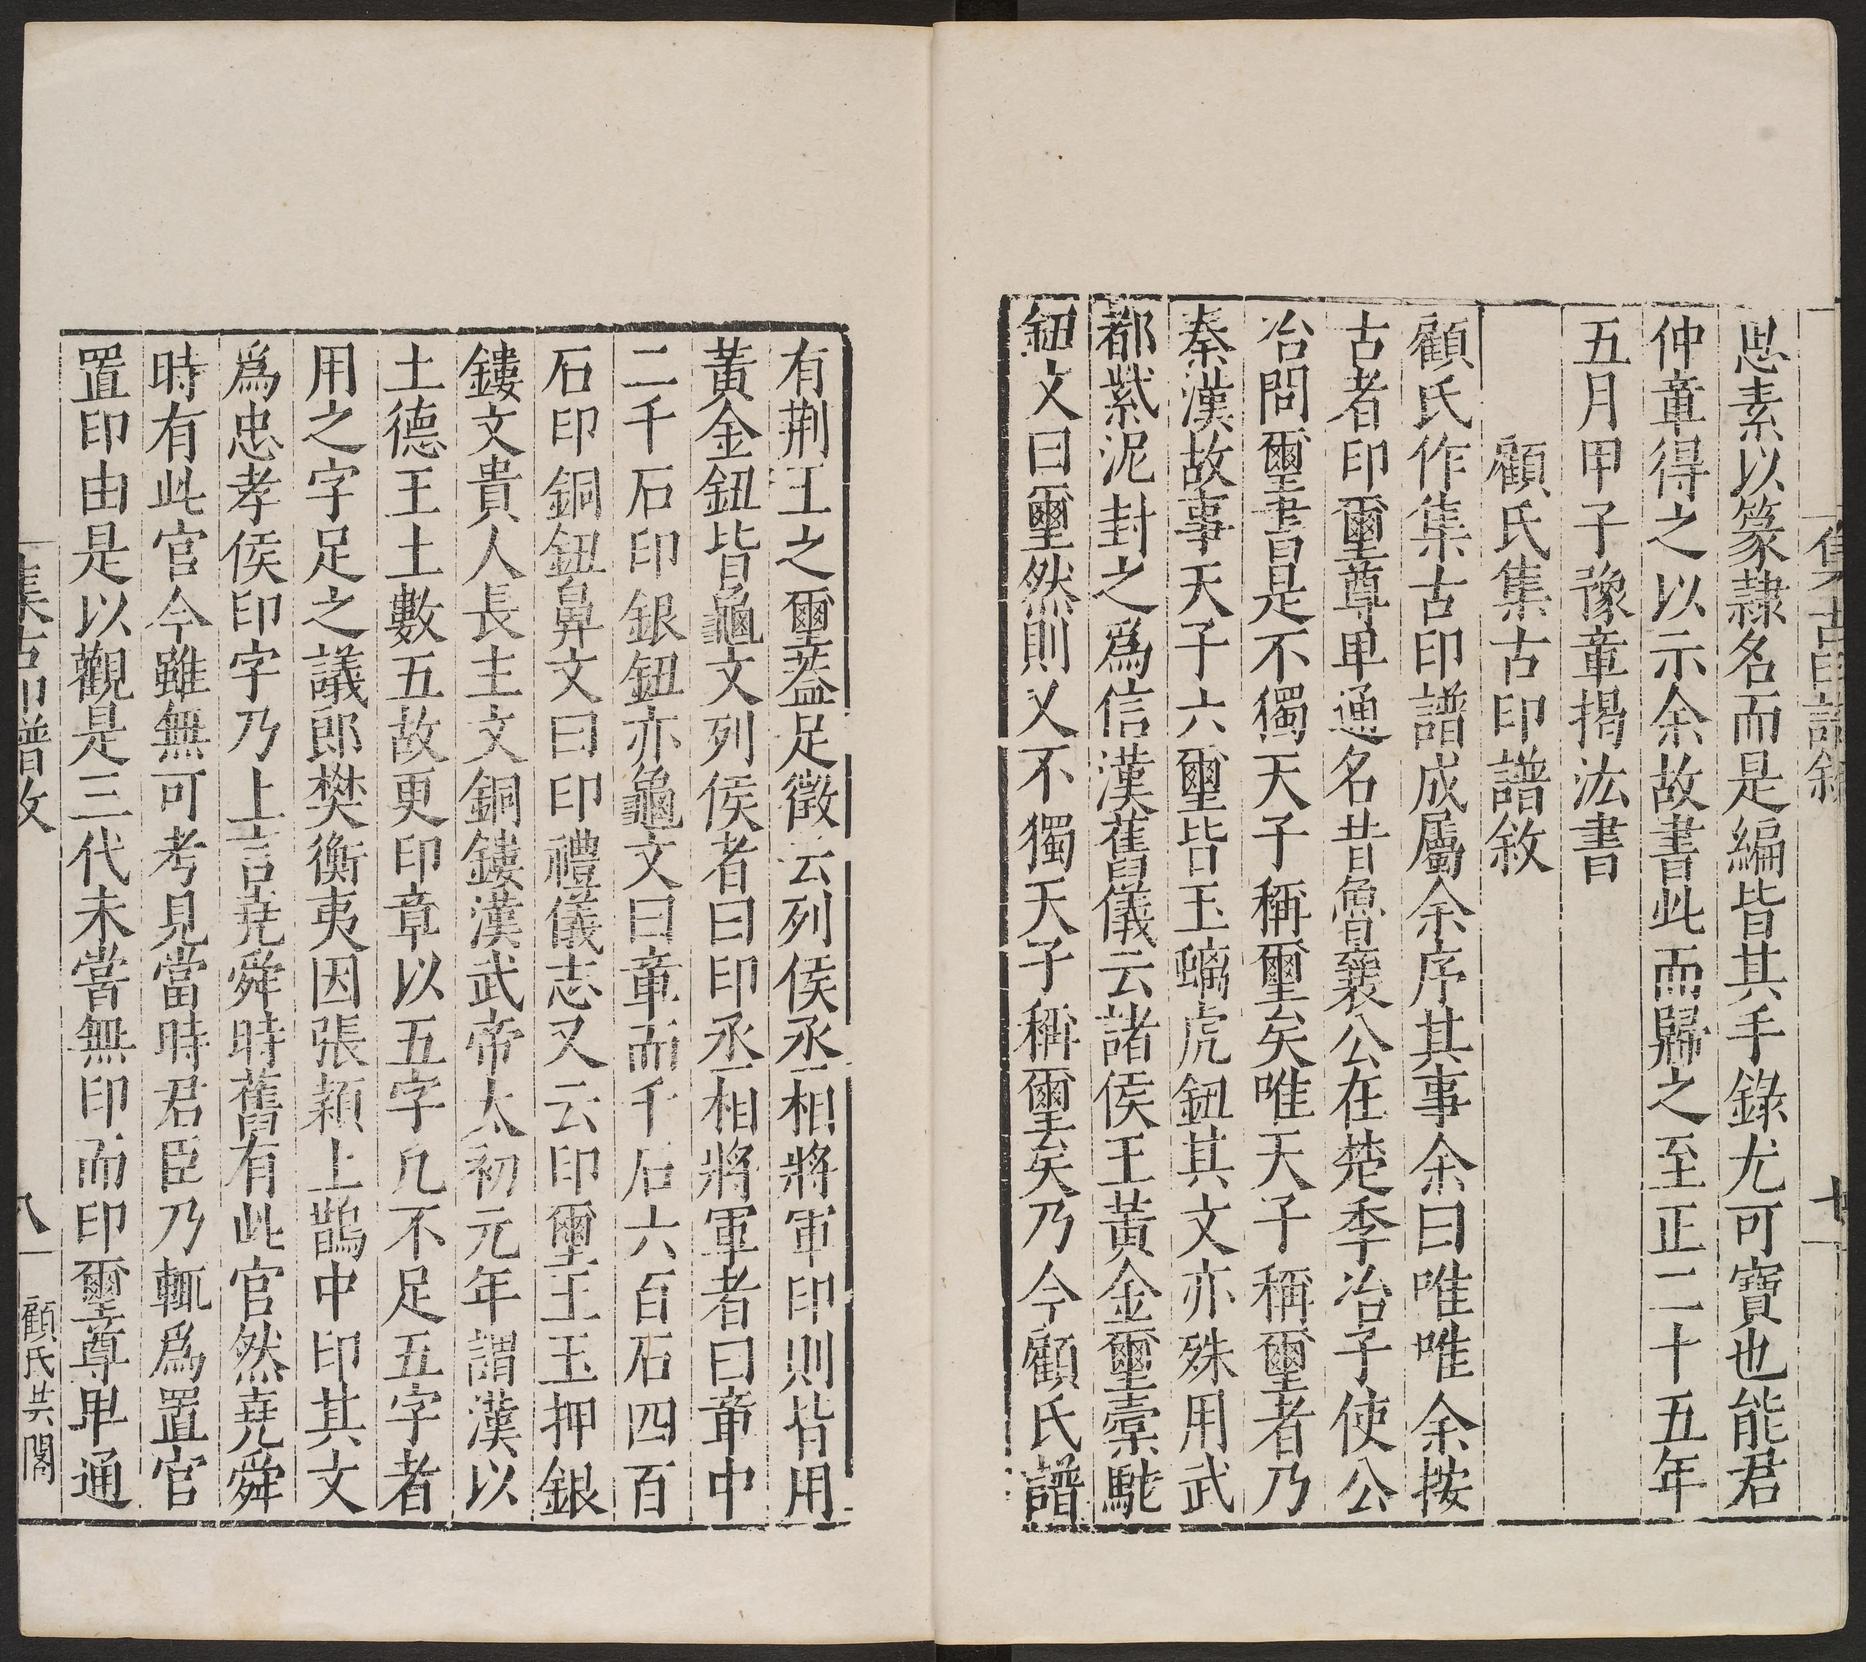 思素以篆隷名而是編皆其手錄尤可寶也能君
仲章得之以示余故書此而歸之至正二十五年
五月甲子豫章揭汯書
顧氏集古印譜敘
顧氏作集古印譜成屬余序其事余曰唯唯余按
古者印璽尊卑通名昔魯襄公在楚季冶子使公
冶問璽書是不獨天子稱璽矣唯天子稱璽者乃
秦漢故事天子六璽皆玉螭虎鈕其文亦殊用武
都紫泥封之爲信漢舊儀云諸侯王黃金璽橐駝
鈕文曰璽然則又不獨天子稱璽矣乃今顧氏譜
有荆王之璽葢足徵云列侯丞相將軍印則皆用
黃金鈕皆龜文列侯者曰印丞相將軍者曰章中
二千石印銀鈕亦龜文曰章而千石六百石四百
石印銅鈕鼻文曰印禮儀志又云印璽王玉押銀
鏤文貴人長主文銅鏤漢武帝太初元年謂漢以
土德王土數五故更印章以五字凡不足五字者
用之字足之議郎樊衡夷因張顥上鵲中印其文
爲忠孝侯印字乃上言堯舜時舊有此官然堯舜
時有此官今雖無可考見當時君臣乃輒爲置官
置印由是以觀是三代未嘗無印而印璽尊卑通
集古印譜敘
八
顧氏芸閣